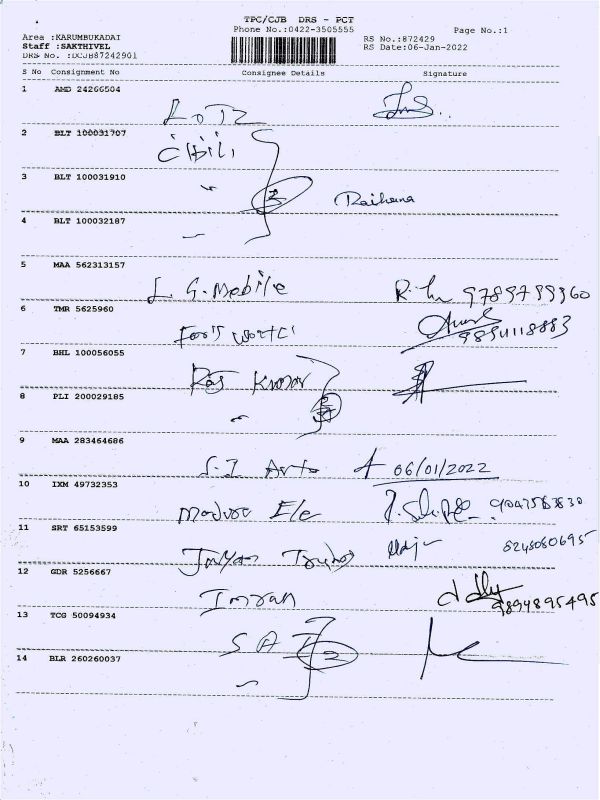 TPC/CJB DRS - PCT
Phone No.:0422-3505555
Page No.:1
Area :KARUMBUKADAI
RS No.:872429
Staff :SAKTHIVEL
RS Date:06-Jan-2022
DRS No. :DCJB87242901
S No Consignment No Consignee Details Signature
1 AMD 24266504
2 BLT 100031707
3 BLT 100031910
2 Raihana
4 BLT 100032187
5 MAA 562313157
L G. Mobile
6 TMR 5625960
9894118883
7 BHL 100056055
Raj Kumar
8 PLI 200029185
9 MAA 283464686
06/01/2022
10 IXM 49732353
Ele
11 SRT 65153599
8248060695
12 GDR 5256667
Imran
9894895495
13 TCG 50094934
2
14 BLR 260260037